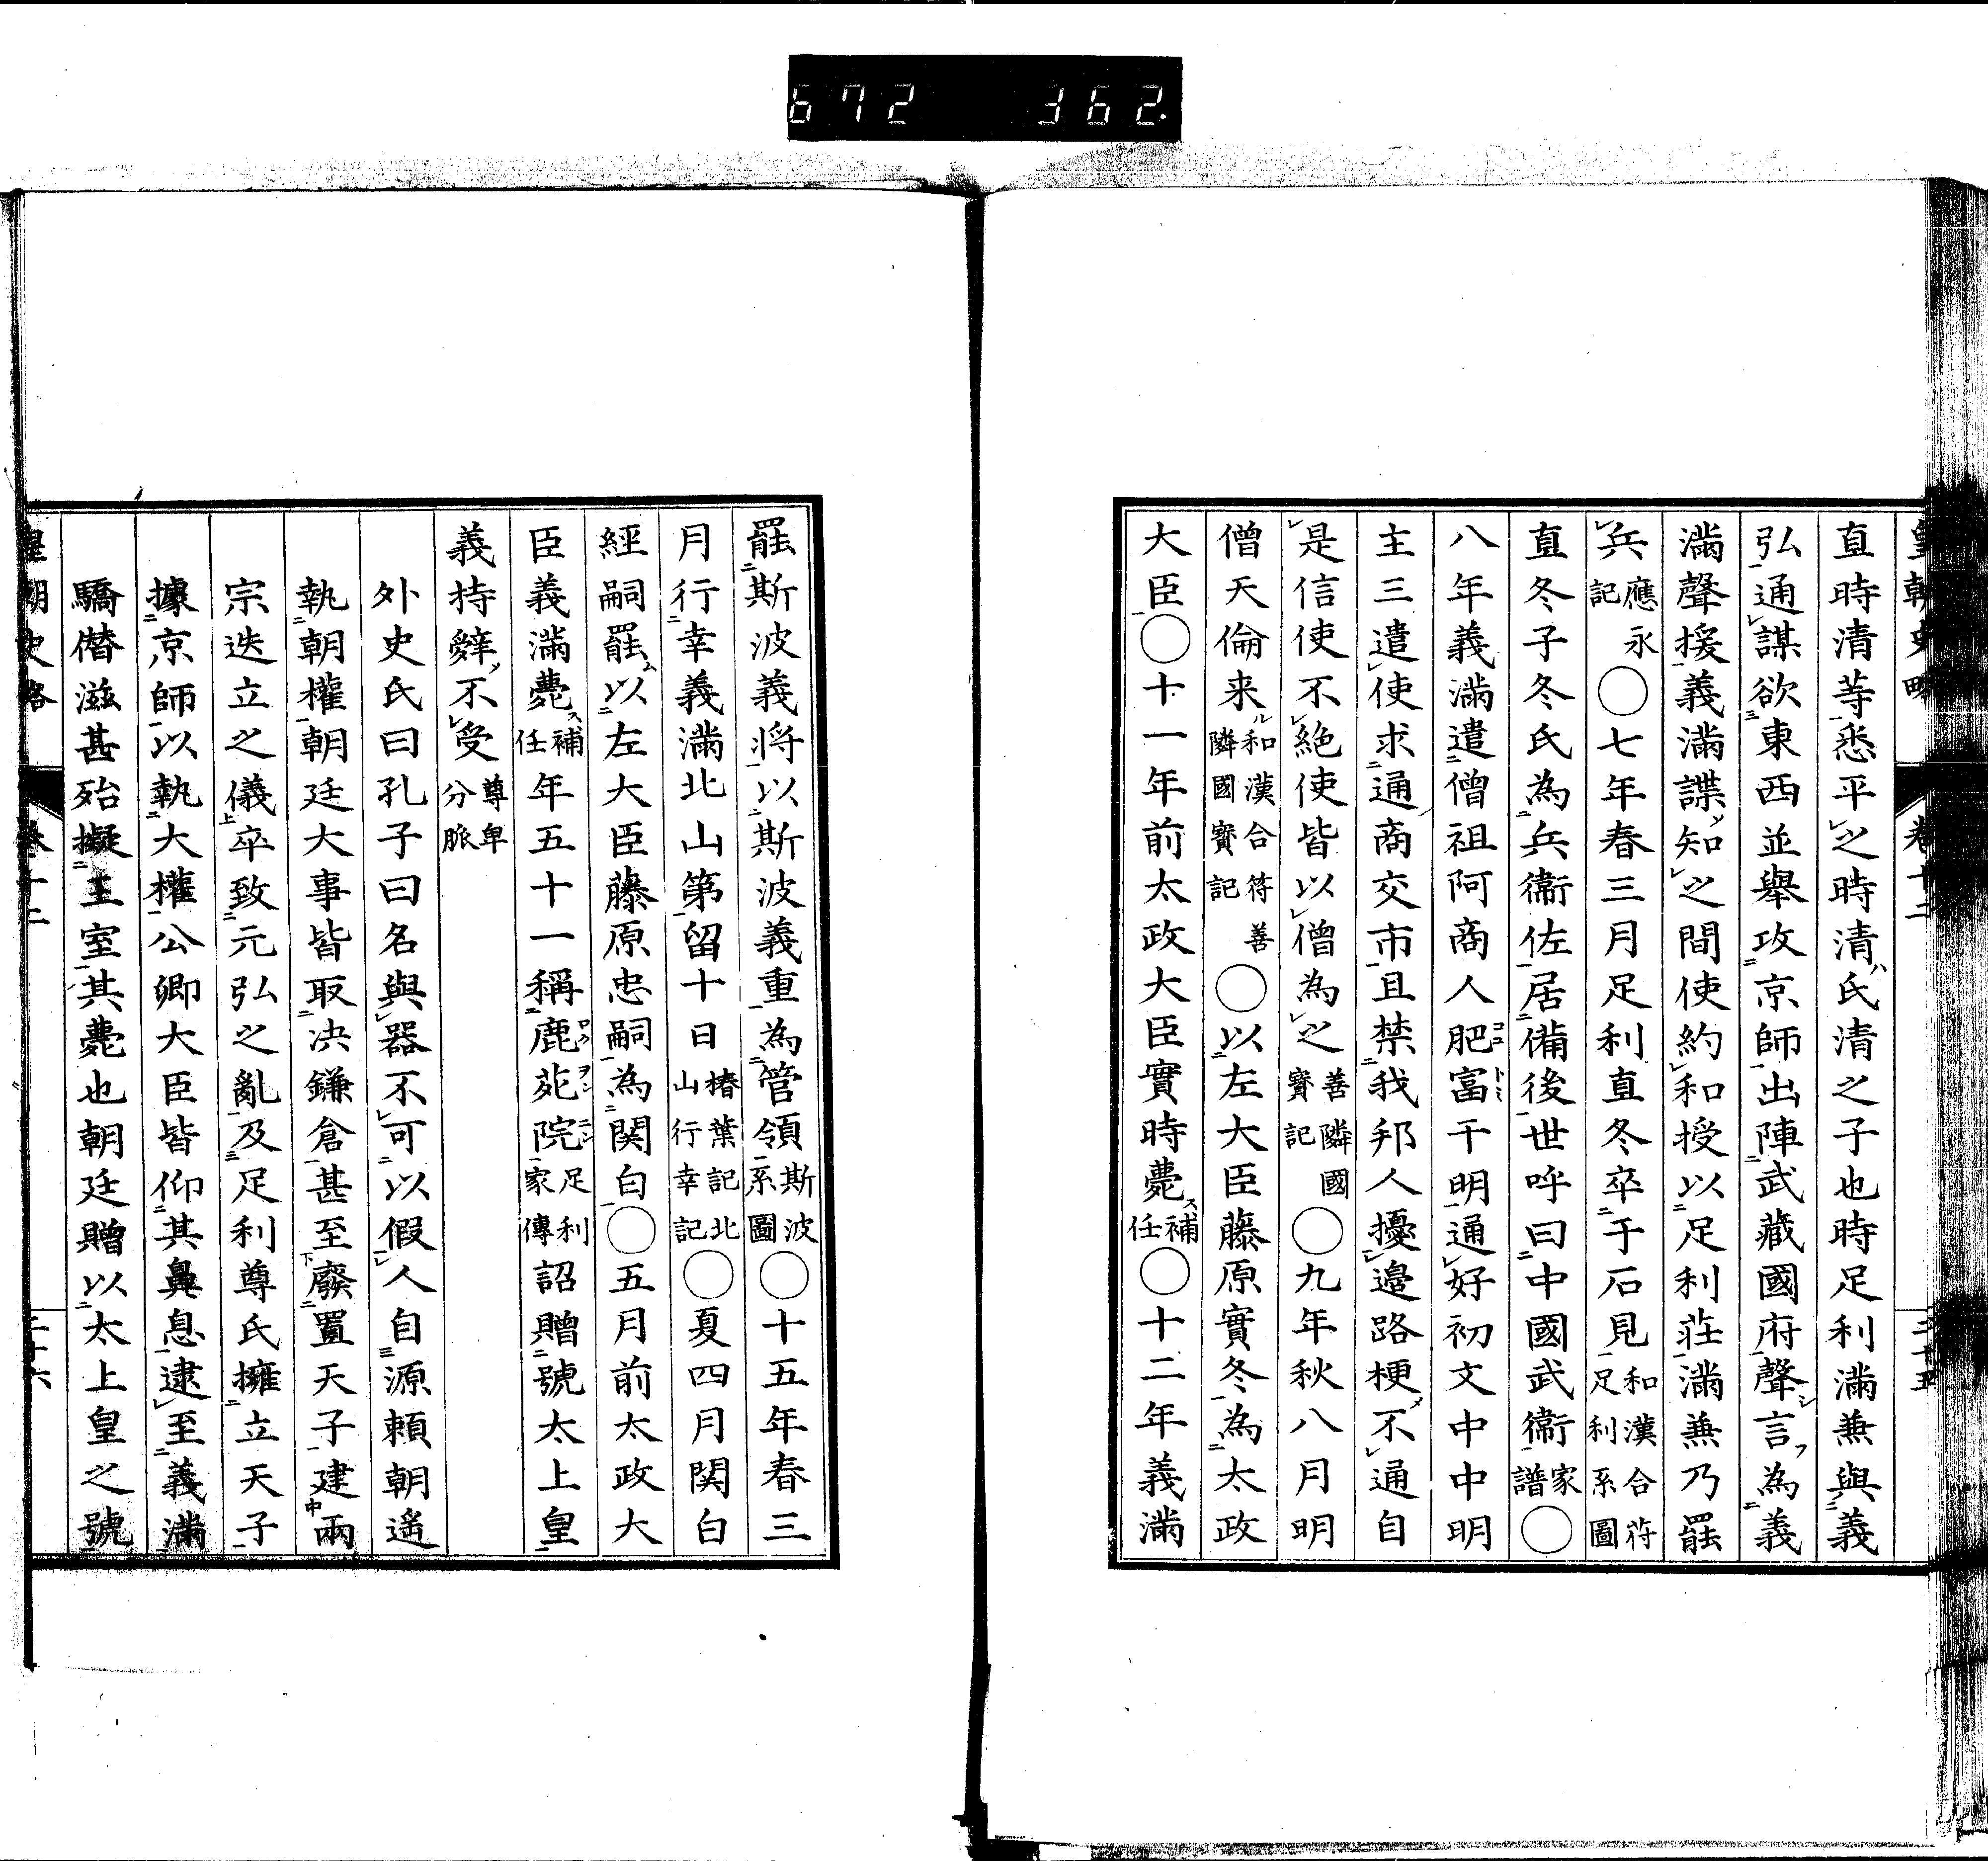 672 362.
皇朝史略 卷十二
直時清等悉平之時清氏清之子也時足利滿兼與義
弘通謀欲東西並舉攻京師出陣武藏國府聲言為義
滿聲援義滿諜知之間使約和授以足利莊滿兼乃罷
兵應永記○七年春三月足利直冬卒于石見和漢合符足利系圖
直冬子冬氏為兵衞佐居備後世呼曰中國武衞家譜○
八年義滿遣僧祖阿商人肥富于明通好初文中中明
主三遣使求通商交市且禁我邦人擾邊路梗不通自
是信使不絕使皆以僧為之善隣國寶記○九年秋八月明
僧天倫来和漢合符善隣國寶記○以左大臣藤原實冬為太政
大臣○十一年前太政大臣實時薨補任○十二年義滿
罷斯波義將以斯波義重為管領斯波系圖○十五年春三
月行幸義滿北山第留十日椿葉記北山行幸記○夏四月関白
經嗣罷以左大臣藤原忠嗣為関白○五月前太政大
臣義滿薨補任年五十一稱鹿苑院足利家傳詔贈號太上皇
義持辭不受尊卑分脈
外史氏曰孔子曰名與器不可以假人自源賴朝遙
執朝權朝廷大事皆取决鎌倉甚至廢置天子建兩
宗迭立之儀卒致元弘之亂及足利尊氏擁立天子
據京師以執大權公卿大臣皆仰其鼻息逮至義滿
驕僭滋甚殆擬王室其薨也朝廷贈以太上皇之號
皇朝史略 卷十二 二十六